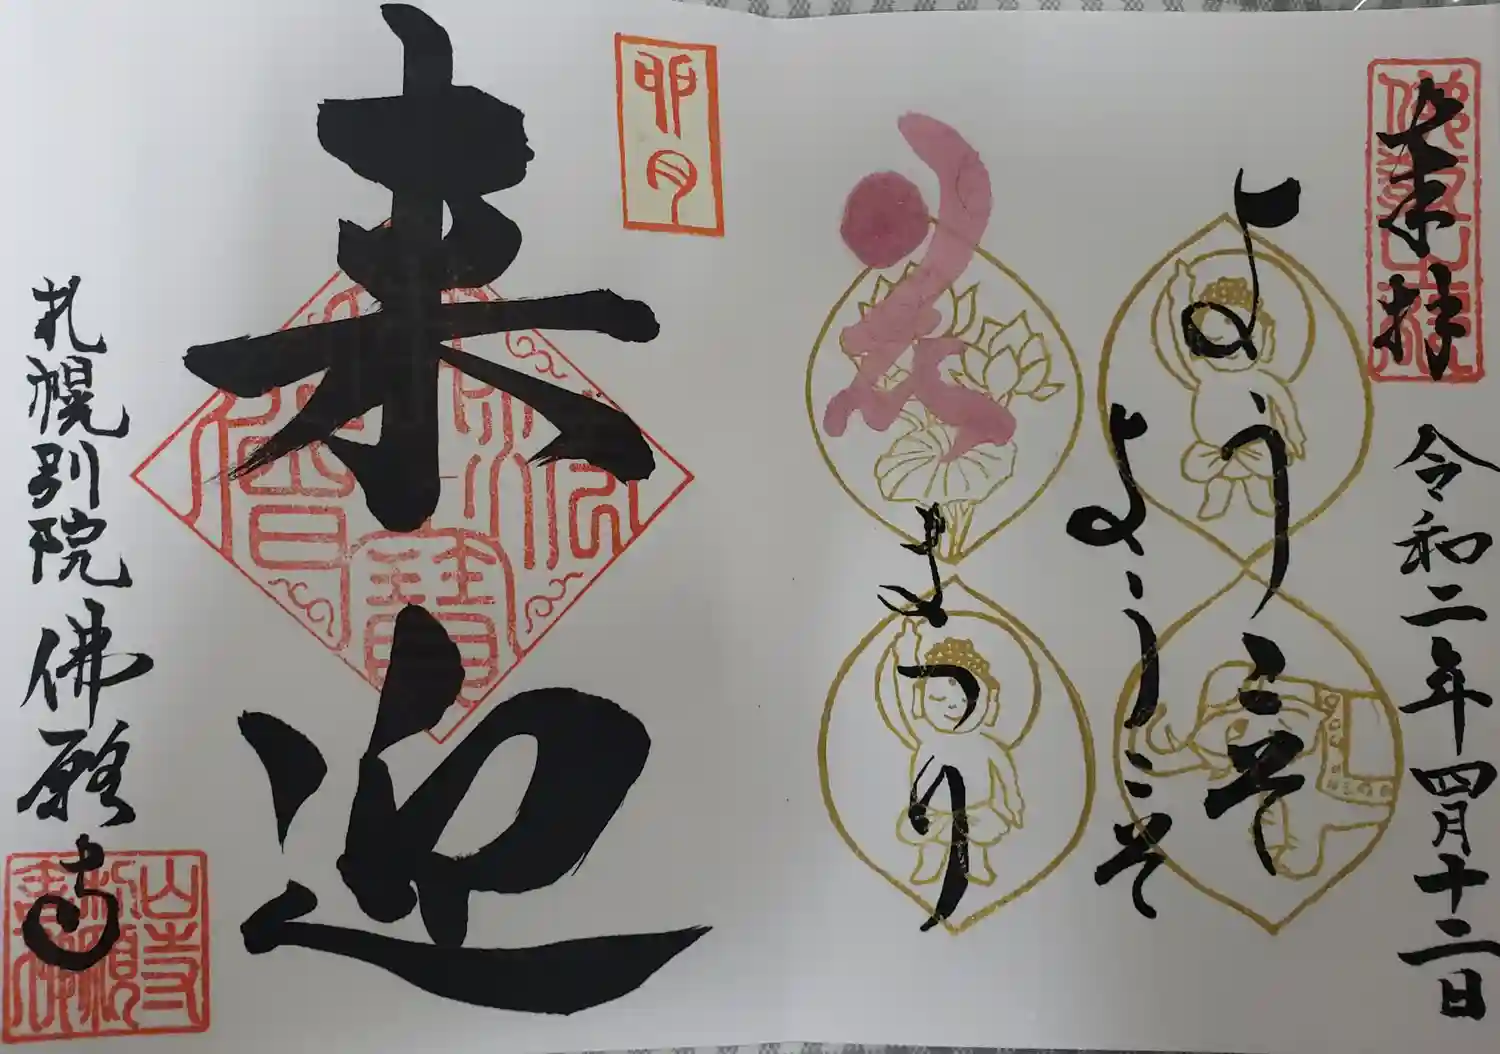 奉拝
令和二年四月十二日
ようこそ
ようこそ
花まつり
卯月
来迎
佛法僧寶
札幌別院 佛願寺